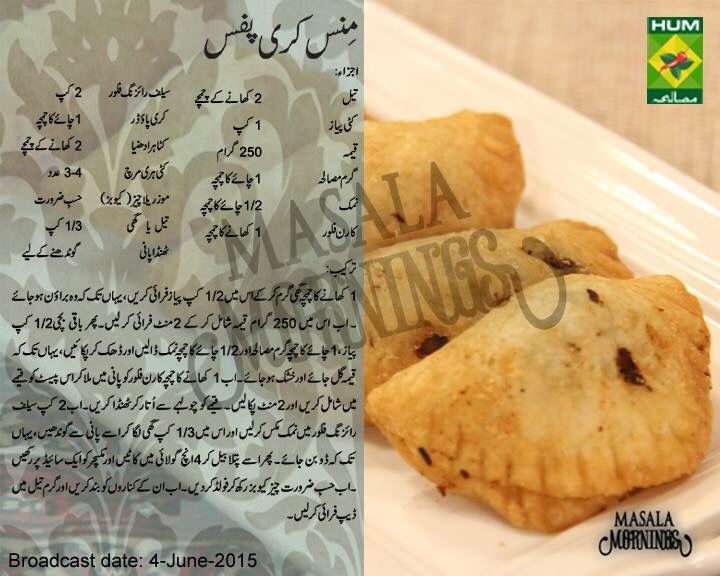 مِنس کری پفس
HUM
مصالحہ
اجزاء:
تیل 2 کھانے کے چمچے سیلف رائزنگ فلور 2 کپ
کٹی پیاز 1 کپ کری پاؤڈر 1 چائے کا چمچہ
قیمہ 250 گرام کٹا ہرا دھنیا 2 کھانے کے چمچے
گرم مصالحہ 1 چائے کا چمچہ کٹی ہری مرچ 3-4 عدد
نمک 1/2 چائے کا چمچہ موزریلا چیز (کیوبز) حسب ضرورت
کارن فلور 1 کھانے کا چمچہ تیل یا گھی 1/3 کپ
ٹھنڈا پانی گوندھنے کے لیے
ترکیب:
1 کھانے کا چمچہ گھی گرم کر کے اس میں 1/2 کپ پیاز فرائی کریں، یہاں تک کہ وہ براؤن ہو جائے
۔ اب اس میں 250 گرام قیمہ شامل کر کے 2 منٹ فرائی کر لیں۔ پھر باقی بچی 1/2 کپ
پیاز، 1 چائے کا چمچہ گرم مصالحہ اور 1/2 چائے کا چمچہ نمک ڈالیں اور ڈھک کر پکائیں، یہاں تک کہ
قیمہ گل جائے اور خشک ہو جائے۔ اب 1 کھانے کا چمچہ کارن فلور کو پانی میں ملا کر اس پیسٹ کو قیمے
میں شامل کریں اور 2 منٹ پکا لیں۔ قیمے کو چولہے سے اُتار کر ٹھنڈا کریں۔ اب 2 کپ سیلف
رائزنگ فلور میں نمک مکس کر لیں اور اس میں 1/3 کپ گھی لگا کر اسے پانی سے گوندھیں، یہاں
تک کہ ڈو بن جائے۔ پھر اسے پتلا بیل کر 4 انچ گولائی میں کاٹیں اور مکسچر کو ایک سائیڈ پر رکھیں
۔ اب حسب ضرورت چیز کیوبز رکھ کر فولڈ کر دیں۔ اب ان کے کناروں کو بند کریں اور گرم تیل میں
ڈیپ فرائی کر لیں۔
MASALA
MORNINGS
MASALA
MORNINGS
Broadcast date: 4-June-2015